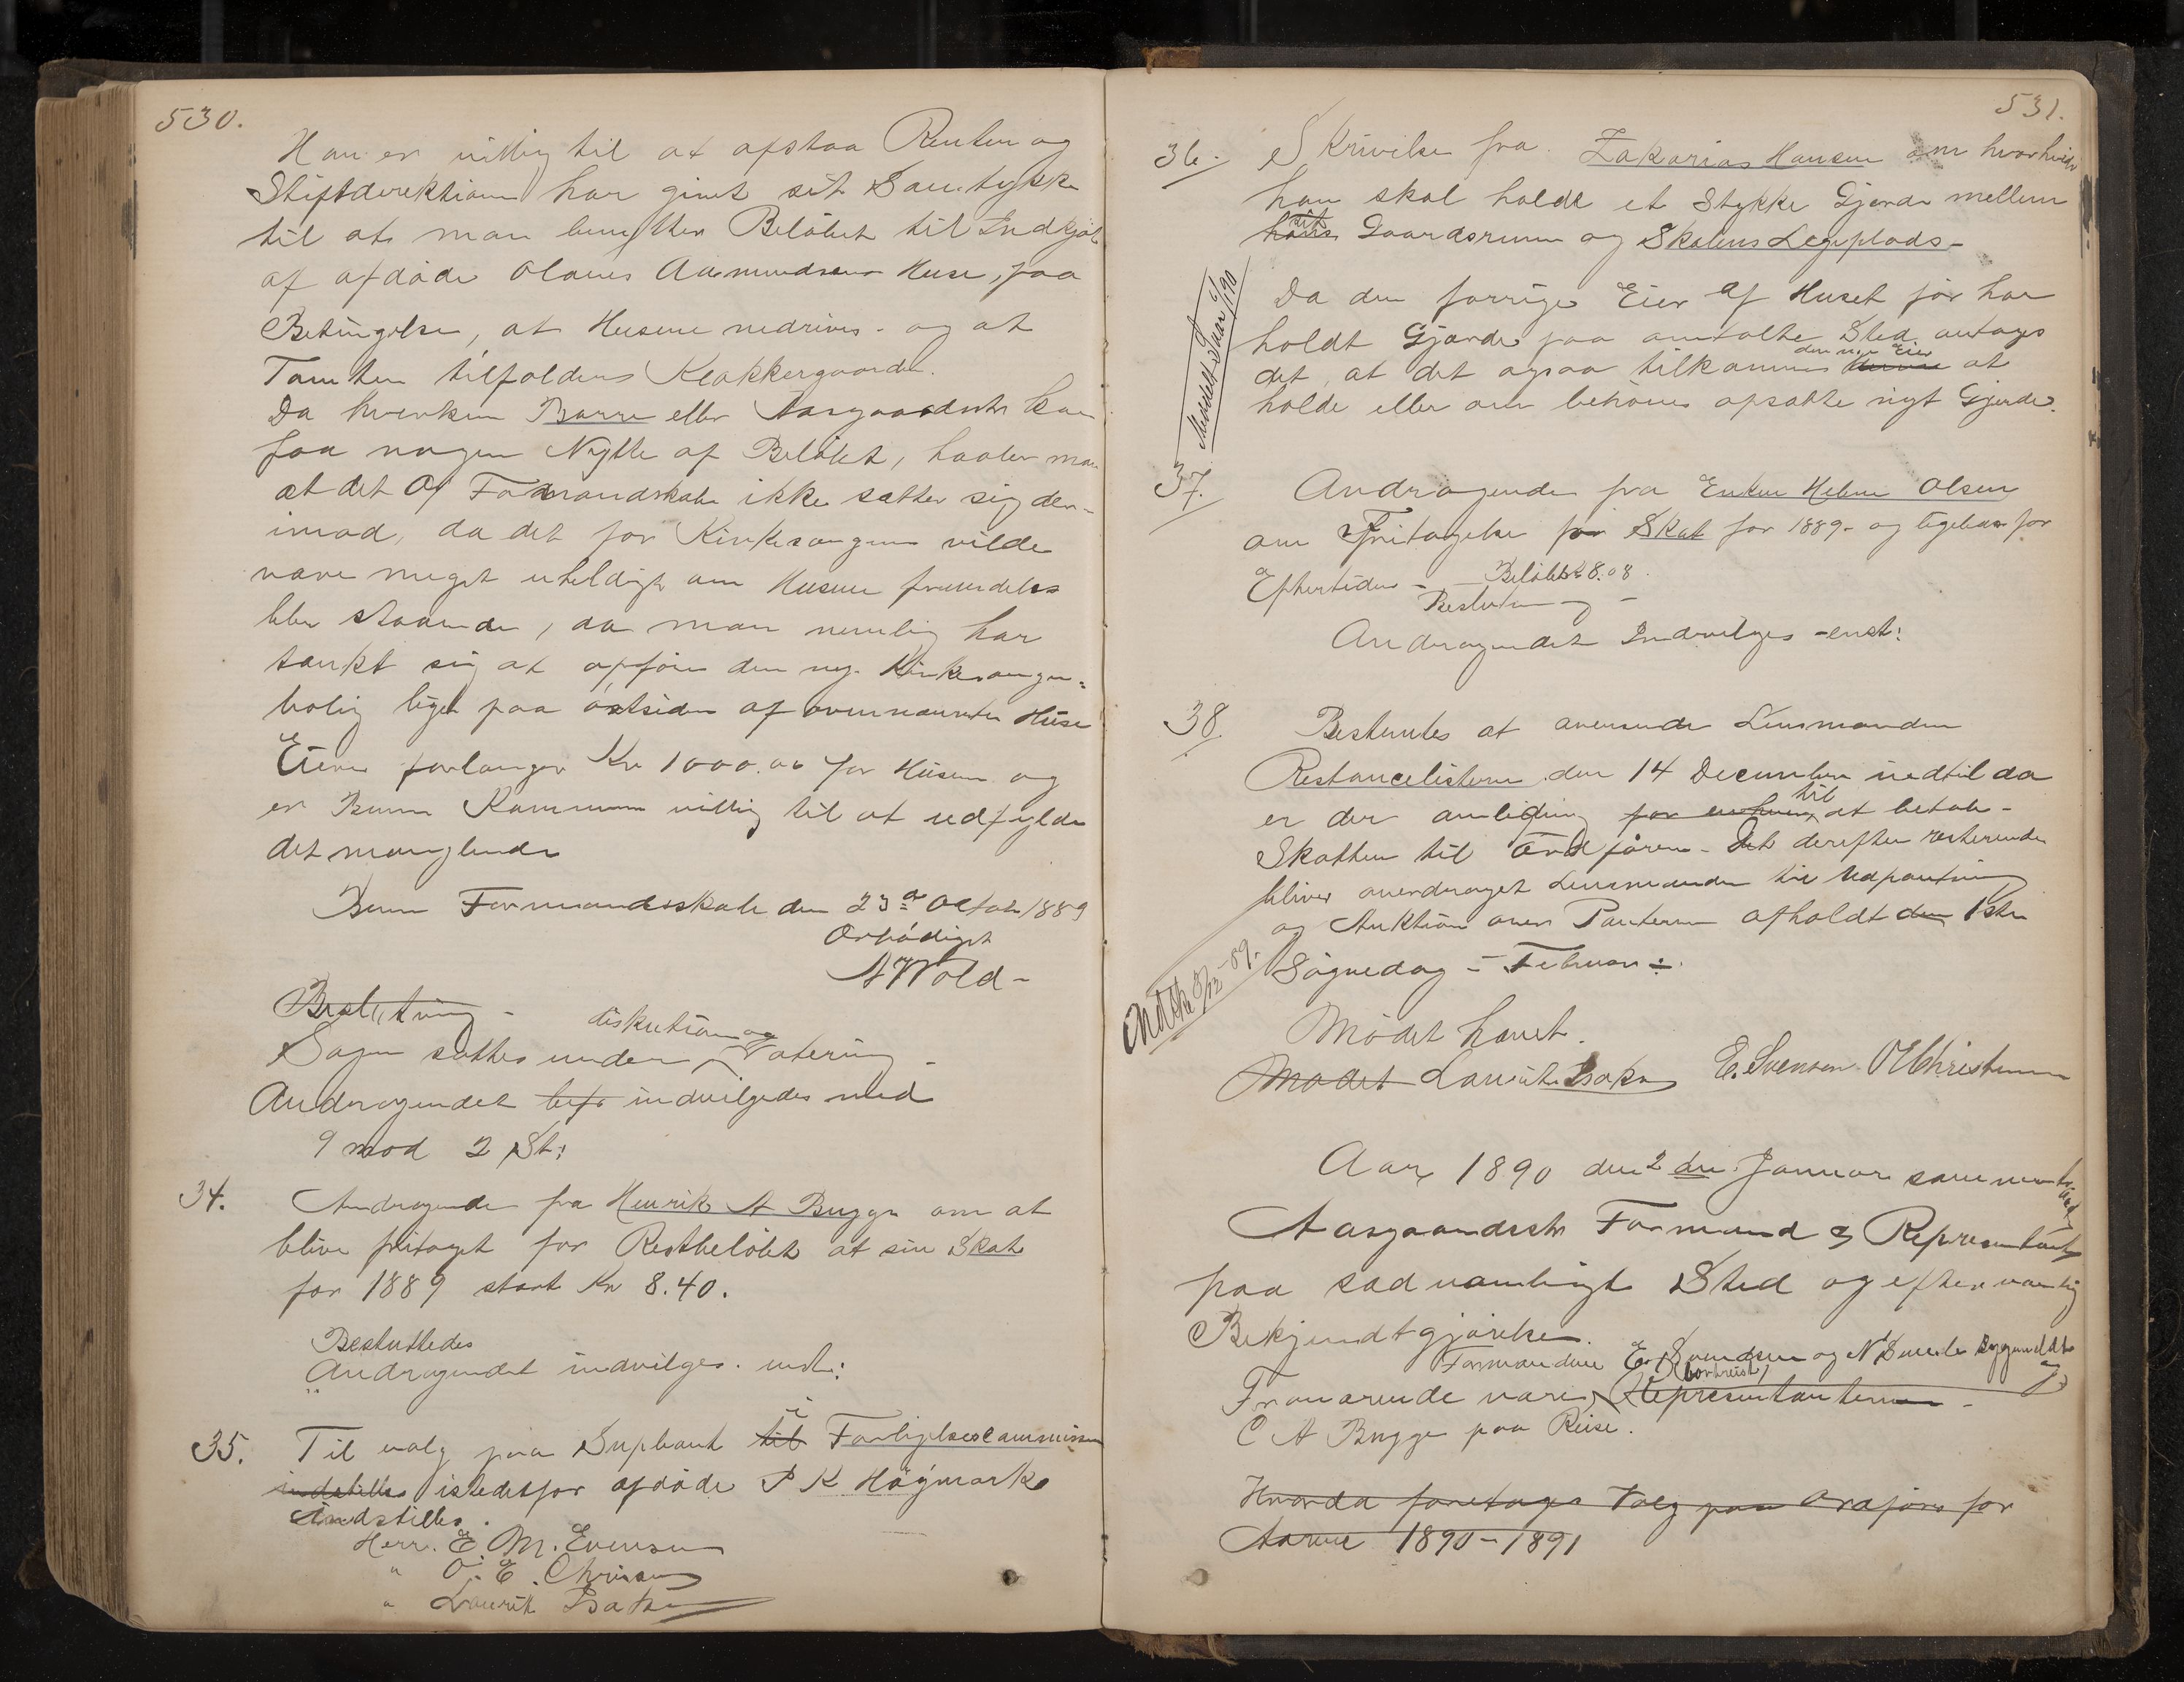 530.
Han er villig til at afstaa Renten og
Stiftdirektionen har givet sit Samtykke
til at man benytter Beløbet til Indkjøb
af afdøde Olaves Aamundsens Huse, paa
Betingelse, at Husene nedrives - og at
Tomten tilfalder Klokkergaarden.
Da hverken Borre eller Aasgaardstr kan
faa nogen Nytte af Beløbet, haaber man
at det Formandskabe ikke sætter sig der-
imod, da det for Kirkesangeren vilde
være meget uheldigt om Husene fremdeles
blev staaende, da man nemlig har
tænkt sig at opføre den ny Kirkesanger-
bolig lige paa østsiden af ovennævnte Huse
Eieren forlanger Kr 1000.00 for Husene og
er Kommune villig til at udfylde
det manglende
Formandsskab den 23de Octob 1889
Ærbødigst
A Wold -
Beslutning -
diskution og
Sagen sattes under Votering -
Andragendet indvilgedes med
9 mod 2 St:
34. Andragende fra Henrik A Bugge om at
blive fritaget for Restbeløbet af sin Skat
for 1889 stort Kr 8.40.
Besluttedes
Andragendet indvilges. enst:
35. Til valg paa Supleant til i Forligelsescommissionen
indstilles istedetfor afdøde P K Høymark
indstilles.
Herr. E. M. Evensen
" O. E. Chrisen
" Laurits Isaks
531.
36. Skrivelse fra Zakarias Hansen om hvorhvidt
han skal holde et Stykke Gjerde mellem
hans sit Gaardsrum og Skolens Legeplads -
Da den forrige Eier af Huset før har
holdt Gjærde paa omtalte Sted, antages
den nye Eier
det, at det ogsaa tilkommer denne at
holde eller om behøves opsætte nyt Gjerde.
Meddelt Svar 1/90
37. Andragende fra Enken Helene Olsen
om Fritagelse for Skat for 1889 - og ligeledes for
Eftertiden - Beløbet 8.08
Beslutning -
Andragendet Indvilges - enst:
38. Bestemtes at oversende Lensmanden
Restancelisterne den 14 December indtil da
til
er der anledning for enhver at betale -
Skatten til Ordføren - Det derefter resterende
bliver overdraget Lensmanden til Udpantning
og Auktion over Panterne afholdt den 1ste
Søgnedag i Februar.
Mødet hævet.
Mødet Laurits Isaks E. Svensen O E Christensen
Aar 1890 den 2den Januar sammentraadte
Aasgaardstr Formænd & Representanter
paa sædvanligt Sted og efter vanlig
Bekjendtgjørelse.
Formændene E. Svendsen og N Smerle sygemeldt
(bortreist)
Fraværende vare Representanterne -
C A Bugge paa Reise.
Hvorda foretages Valg paa Ordfører for
Aarene 1890 - 1891